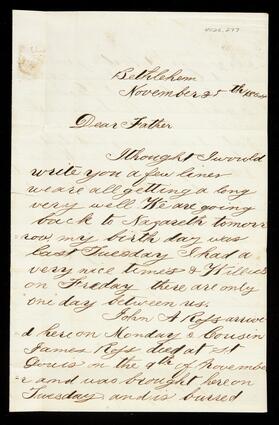 Bethlehem
November 25th
Dear Father
I thought I would
write you a few lines
we are all getting a long
very well We are going
back to Nazareth tomorr
row my birth day was
last Tuesday I had a
very nice time & Willies
on Freday there are only
one day between us.
John A Ross arrive
d here on Monday & Cousin
James Ross died at St
Louis on the 9th of November
r and was brought here on
Tuesday and is burred